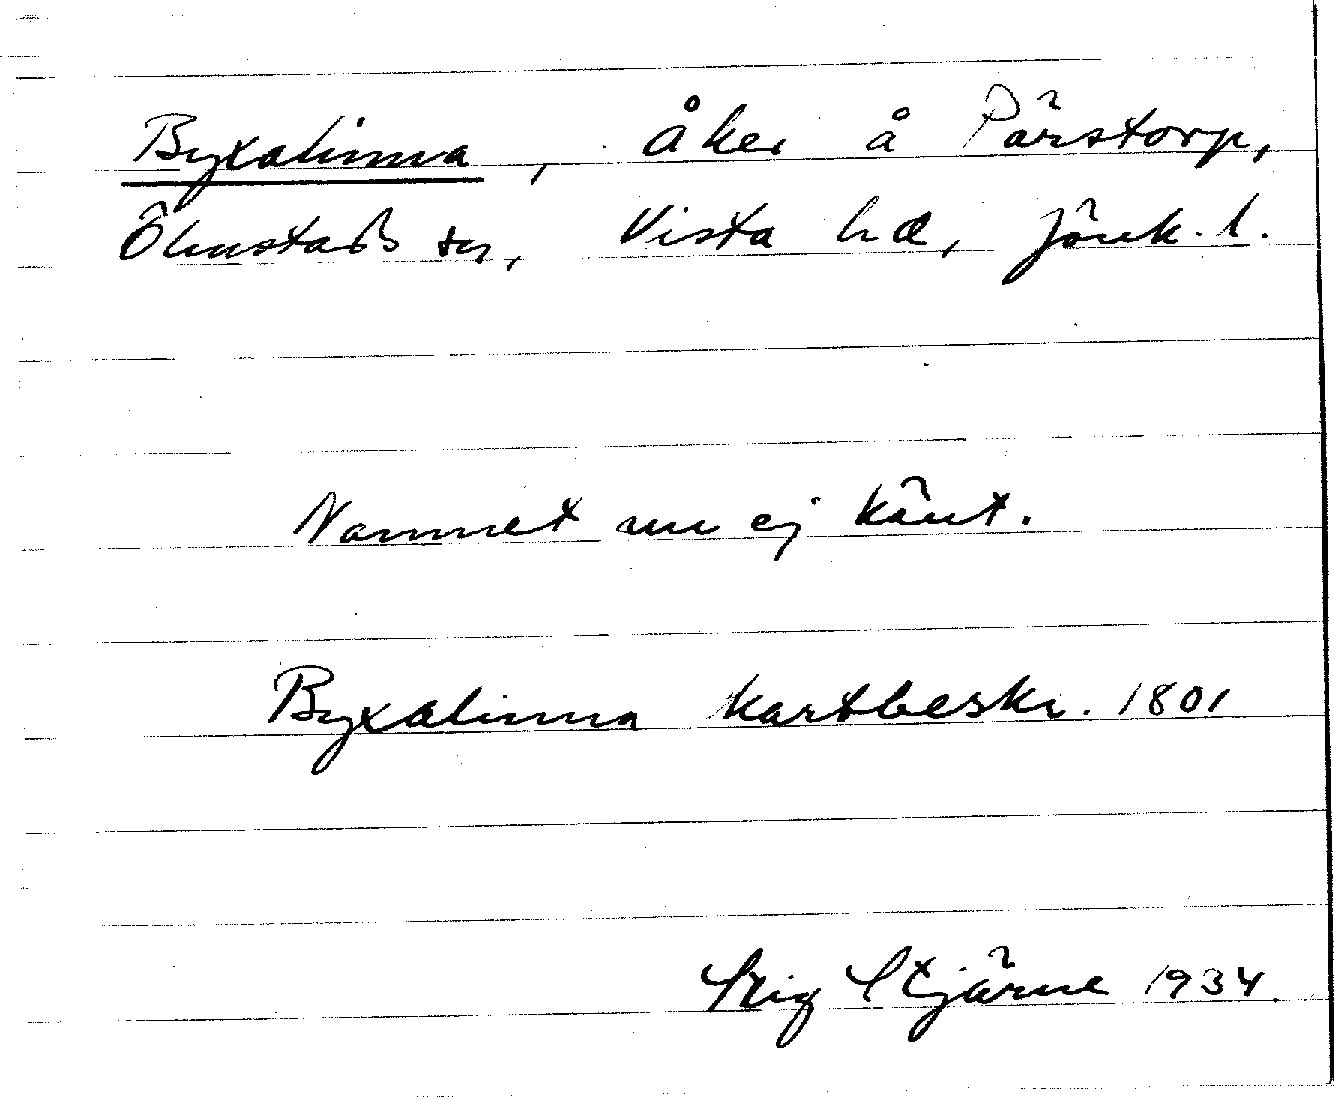 Byxalinna, åker å Pärstorp,
Ölmstads sn, Vista hd, Jönk. l.
Namnet nu ej känt.
Byxalinna kartbeskr. 1801
Stig Stjärne 1934.